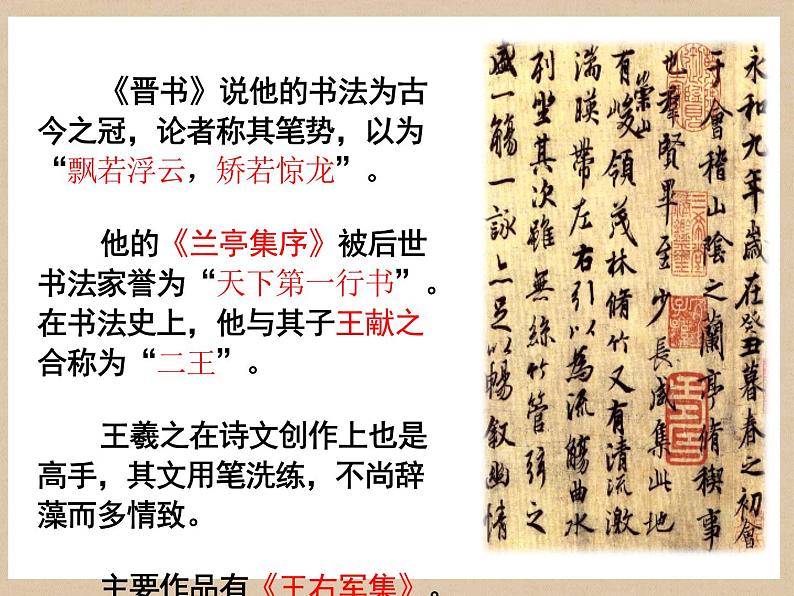 《晋书》说他的书法为古
今之冠，论者称其笔势，以为
“飘若浮云，矫若惊龙”。
他的《兰亭集序》被后世
书法家誉为“天下第一行书”。
在书法史上，他与其子王献之
合称为“二王”。
王羲之在诗文创作上也是
高手，其文用笔洗练，不尚辞
藻而多情致。
主要作品有《王右军集》。
永和九年歲在癸丑暮春之初會
于會稽山陰之蘭亭脩稧事
也羣賢畢至少長咸集此地
有崇山峻領茂林脩竹又有清流激
湍暎帶左右引以為流觴曲水
列坐其次雖無絲竹管弦之
盛一觴一詠亦足以暢敘幽情